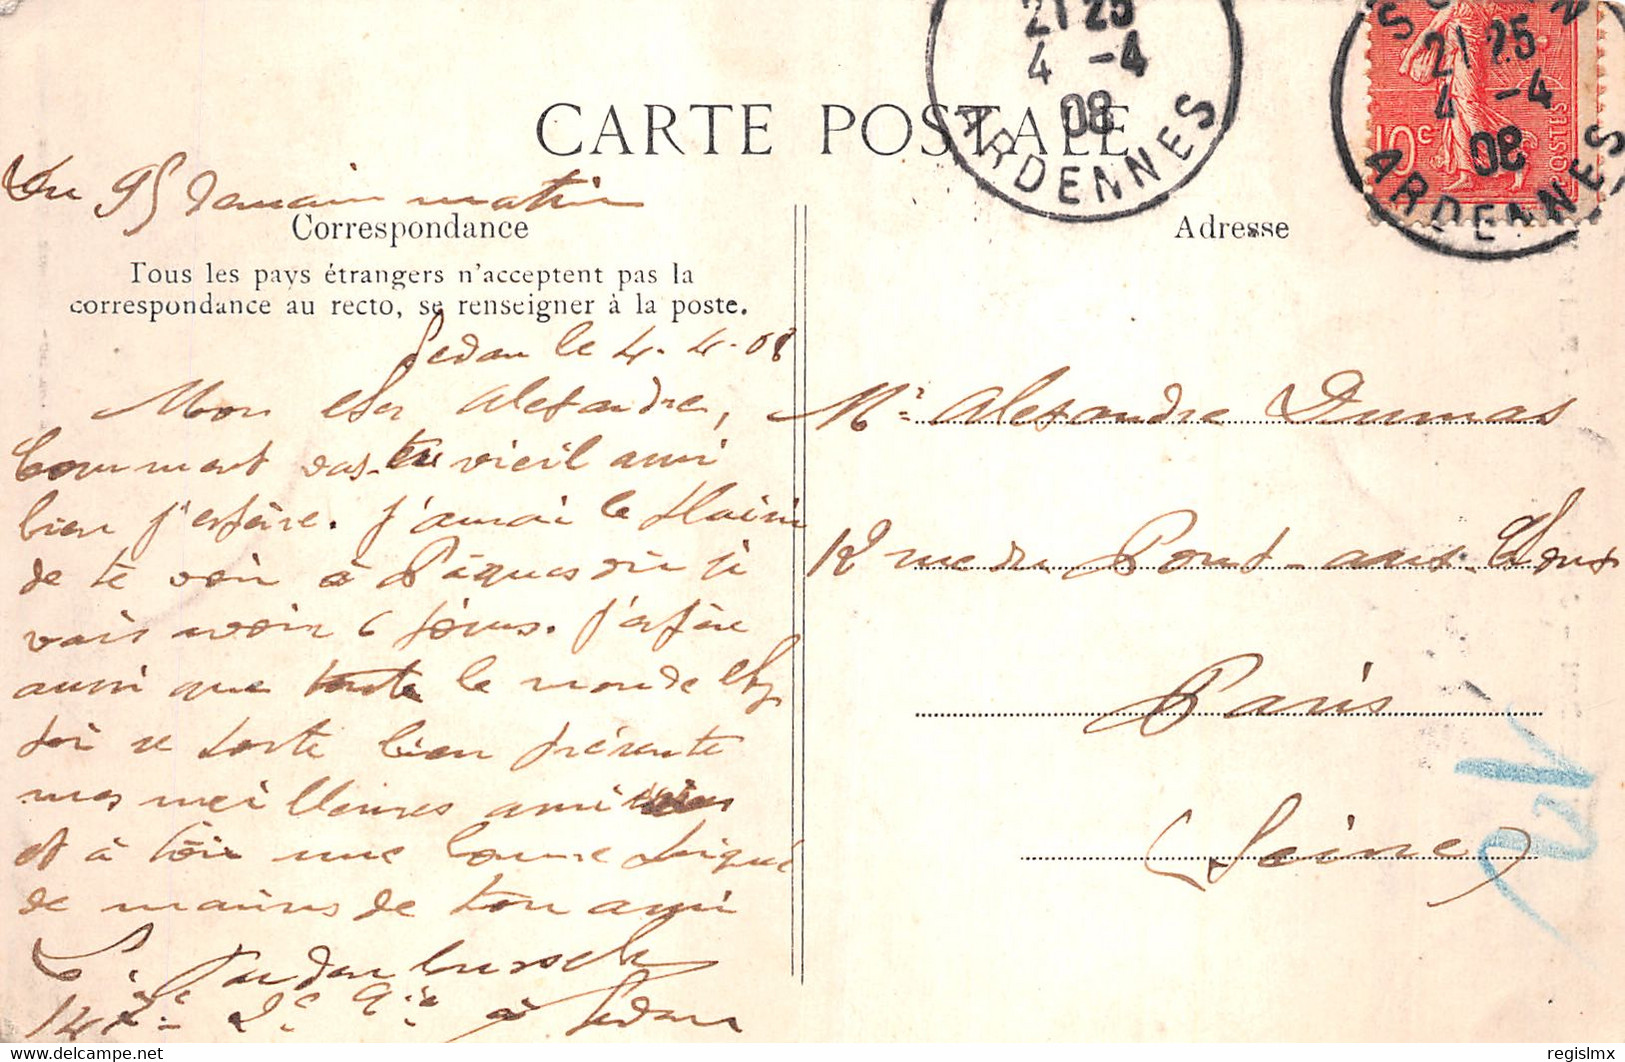 CARTE POSTALE
demain matin
Correspondance
Tous les pays étrangers n'acceptent pas la
correspondance au recto, se renseigner à la poste.
Sedan le 4-4-08
Mon cher Alexandre,
Comment vas-tu vieil ami
bien j'espère. J'aurai le plaisir
de te voir à Pâques où je
vais avoir 6 jours. J'espère
aussi que toute le monde chez
toi se porte bien présente
mes meilleures amitiés
et à toi une bonne poignée
de mains de ton ami
147e 2e Cie à Sedan
Adresse
Mr Alexandre Dumas
12 rue du Pont-aux-Choux
Paris
(Seine)
21 25
4 -4
08
ARDENNES
SEDAN
21 25
4 -4
08
ARDENNES
10c
POSTES
www.delcampe.net
regislmx